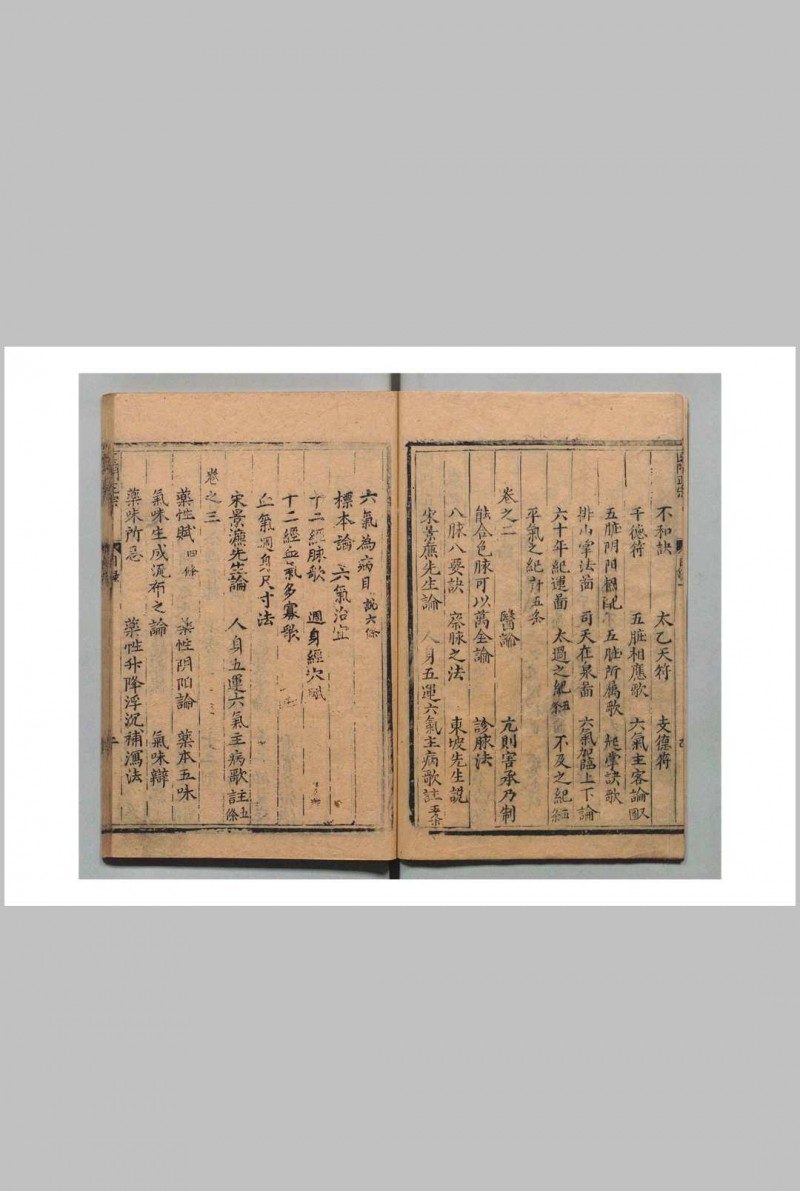 不和訣 太乙天符 支德符
干德符 五脏相應歌 六氣主客論
五脏阴阳 五脏所属歌 起掌訣歌
排山掌法啚 司天在泉啚 六氣加臨上下論
六十年紀運啚 太過之紀 不及之紀
平氣之紀 五条
卷之二 醫論 亢則害承乃制
能合色脉可以萬全論 診脉法
八脉八要訣 察脉之法 東坡先生説
宋景濂先生論 人身五運六氣主病歌註
六氣為病目 説六條
標本論 六氣治宜
十二經脉歌 週身經穴賦
十二經血氣多寡歌
血氣週身尺寸法
宋景濂先生論 人身五運六氣主病歌註 五條
卷之三
藥性賦 四條 藥性阴阳論 藥本五味
氣味生成流布之論 氣味辯
藥味所忌 藥性升降浮沉補瀉法